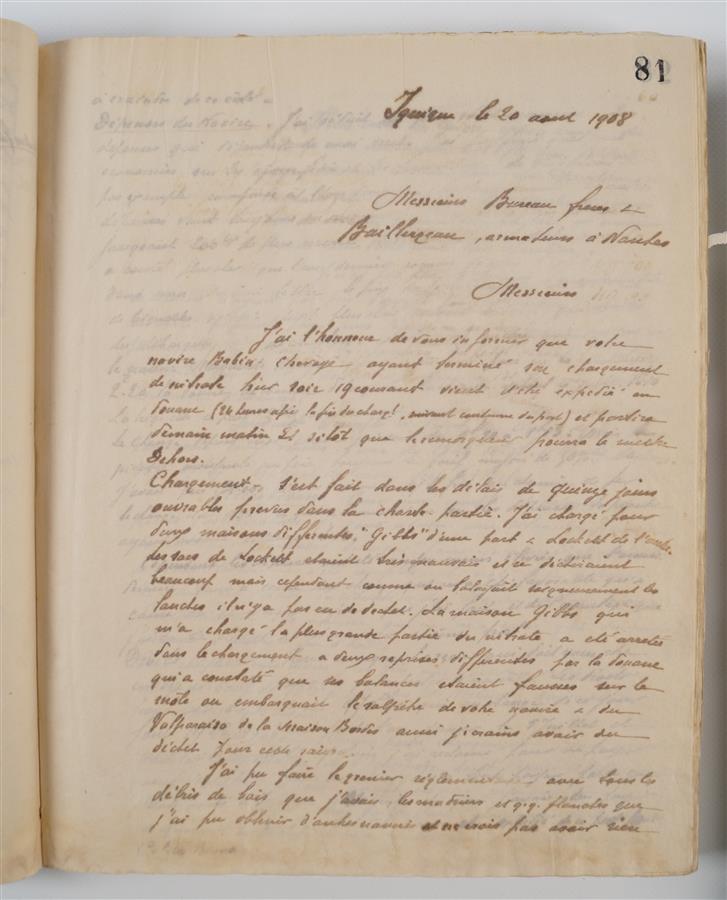 81
Iquique le 20 aout 1908
Messieurs Bureau freres &
Baillergeau, armateurs à Nantes
Messieurs
J'ai l'honneur de vous informer que votre
navire Babin Chevaye ayant terminé son chargement
de nitrate hier soir 19 courant vient d'être expedié en
douane (24 heures après la fin du charg!, suivant coutume du port) et partira
demain matin 21 sitôt que le remorqueur pourra le mettre
Dehors.
Chargement - S'est fait dans les délais de Quinze jours
ouvrables prevus dans la charte-partie. J'ai chargé pour
deux maisons differentes, "Gibbs" d'une part & Lockett de l'autre.
Les sacs de Lockett etaient très mauvais et se dechiraient
beaucoup mais cependant comme on balayait soigneusement les
lanches il n'y a pas eu de dechet. La maison Gibbs qui
m'a chargé la plus grande partie du nitrate a eté arretée
dans le chargement a deux reprises differentes par la douane
qui a constaté que ses balances etaient fausses sur le
mole ou embarquait le salpêtre de votre navire & du
Valparaiso de la Maison Bordes aussi je crains avoir du
déchet pour cette raison.
J'ai pu faire le premier avec tous les
débris de bois que j'avais, les madriers et q.q. planches que
j'ai pu obtenir d'autres navires et ne crois pas avoir rien